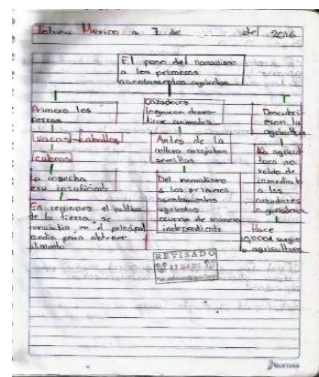 Toluca México a 7 de del 2016
El paso del nomadismo
a los primeros
asentamientos agrícolas
Primero los
perros
vacas caballos
cabras
La cosecha
era insuficiente
En regiones el cultivo
de la tierra, se
convirtió en el principal
medio para obtener
alimento
Cazadores
lograron domes-
ticar animales
Antes de la
cultura arrojaban
semillas
Del nomadismo
a los primeros
asentamientos
agrícolas
ocurrió de manera
independiente
Descubri-
eron la
agricultura
La agricul-
tura no
de inmediato
a los
cazadores
a ganaderos
Hace
10,000 surgio
la agricultura
REVISADO
Norma